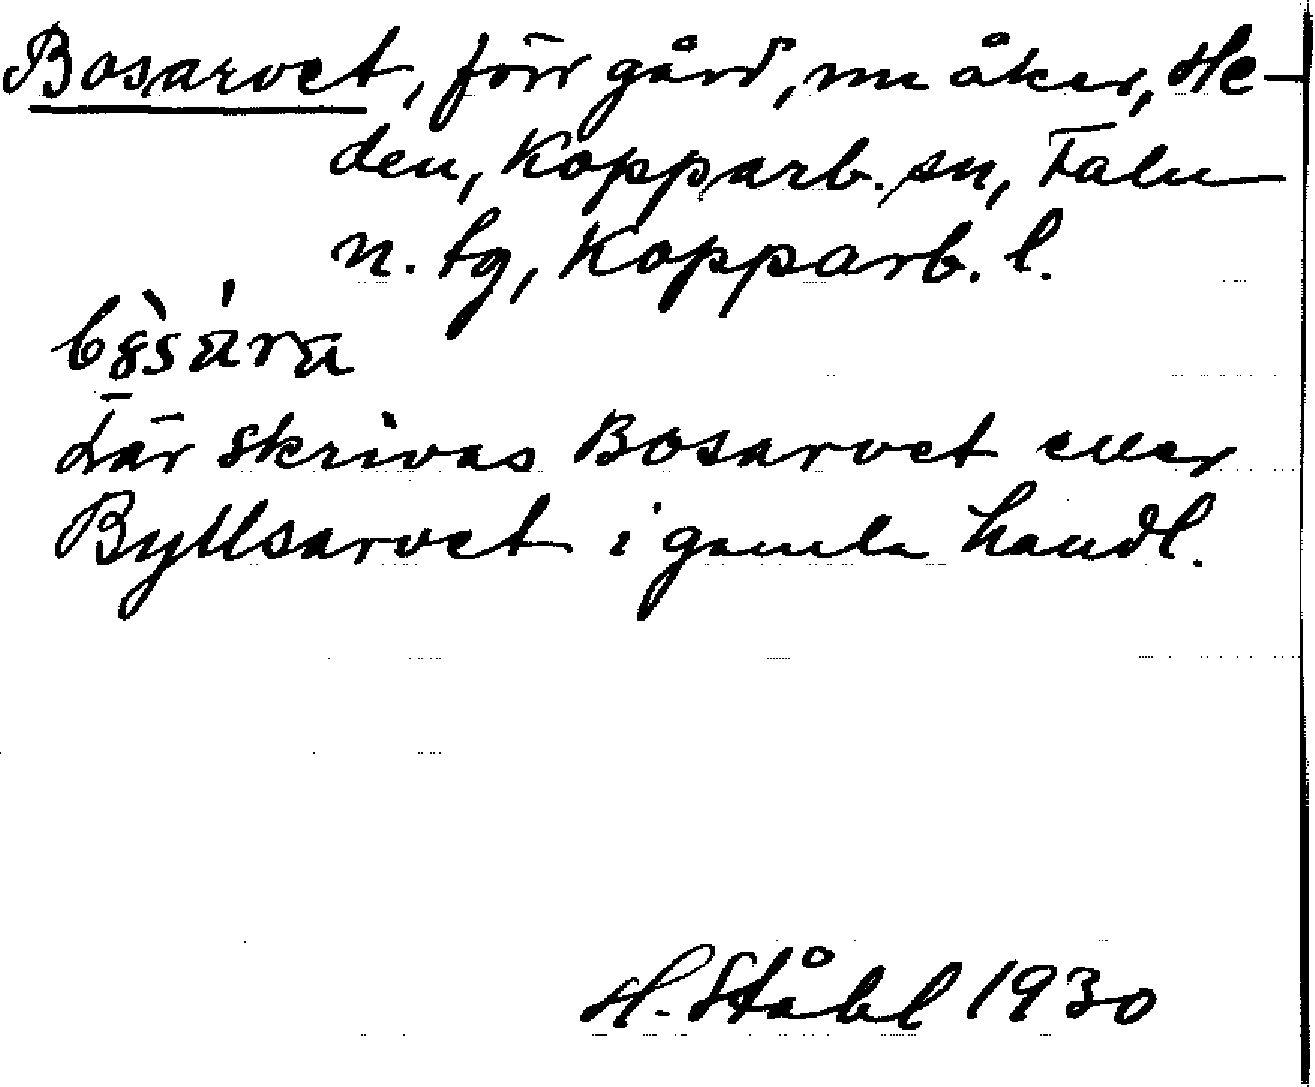 Bosarvet, förr gård, nu åker, He-
den, Kopparb. sn, Falu
n. tg, Kopparb. l.
Lär skrivas Bosarvet eller
Byllsarvet i gamla handl.
H. Ståhl 1930